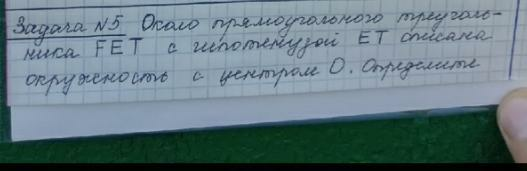 Задача №5 Около прямоугольного треуголь-
ника FET с гипотенузой ET описана
окружность с центром O. Определите